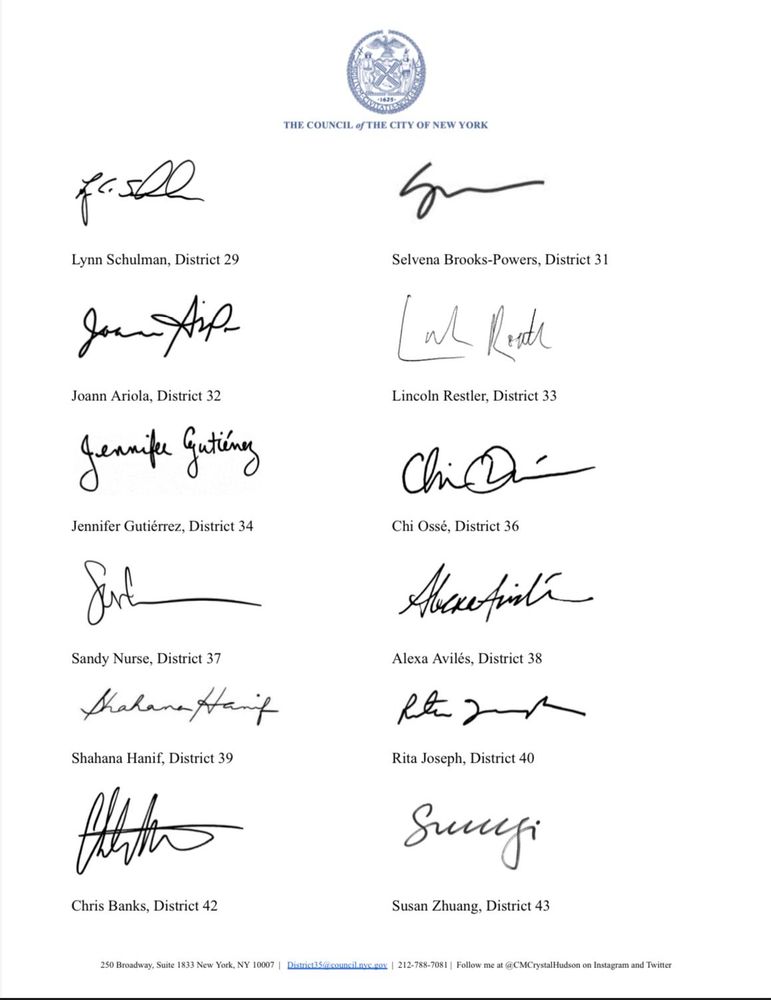 THE COUNCIL of THE CITY OF NEW YORK
Lynn Schulman, District 29
Selvena Brooks-Powers, District 31
Joann Ariola, District 32
Lincoln Restler, District 33
Jennifer Gutiérrez
Jennifer Gutiérrez, District 34
Chi Ossé, District 36
Sandy Nurse, District 37
Alexa Avilés, District 38
Shahana Hanif
Shahana Hanif, District 39
Rita Joseph, District 40
Chris Banks, District 42
Susan Zhuang, District 43
250 Broadway, Suite 1833 New York, NY 10007 | District35@council.nyc.gov | 212-788-7081 | Follow me at @CMCrystalHudson on Instagram and Twitter